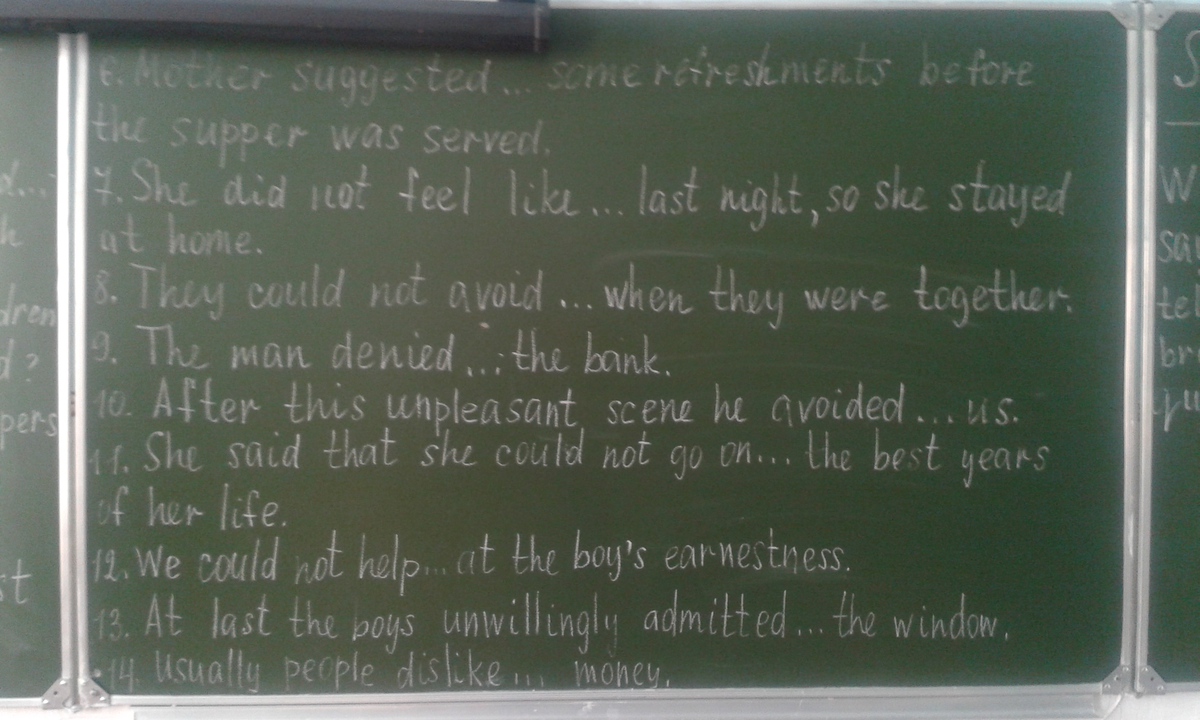 6. Mother suggested... some refreshments before
the supper was served.
7. She did not feel like... last night, so she stayed
at home.
8. They could not avoid... when they were together.
9. The man denied...: the bank.
10. After this unpleasant scene he avoided... us.
11. She said that she could not go on... the best years
of her life.
12. We could not help... at the boy's earnestness.
13. At last the boys unwillingly admitted... the window.
14. Usually people dislike... money.